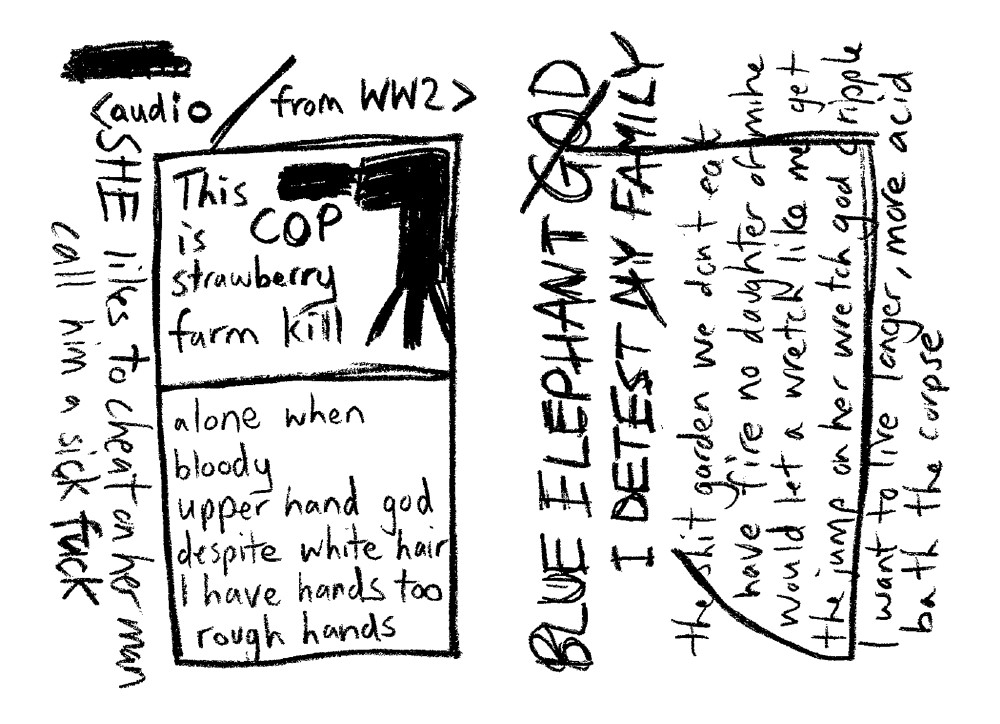 <audio / from WW2>
This
COP
is
strawberry
farm kill
alone when
bloody
upper hand god
despite white hair
I have hands too
rough hands
SHE likes to cheat on her man
call him a sick fuck
BLUE ELEPHANT GOD
I DETEST MY FAMILY
the shit garden we don't eat
have fire no daughter of mine
would let a wretch like me get
the jump on her wretch god cripple
I want to live longer, more acid
bath the corpse